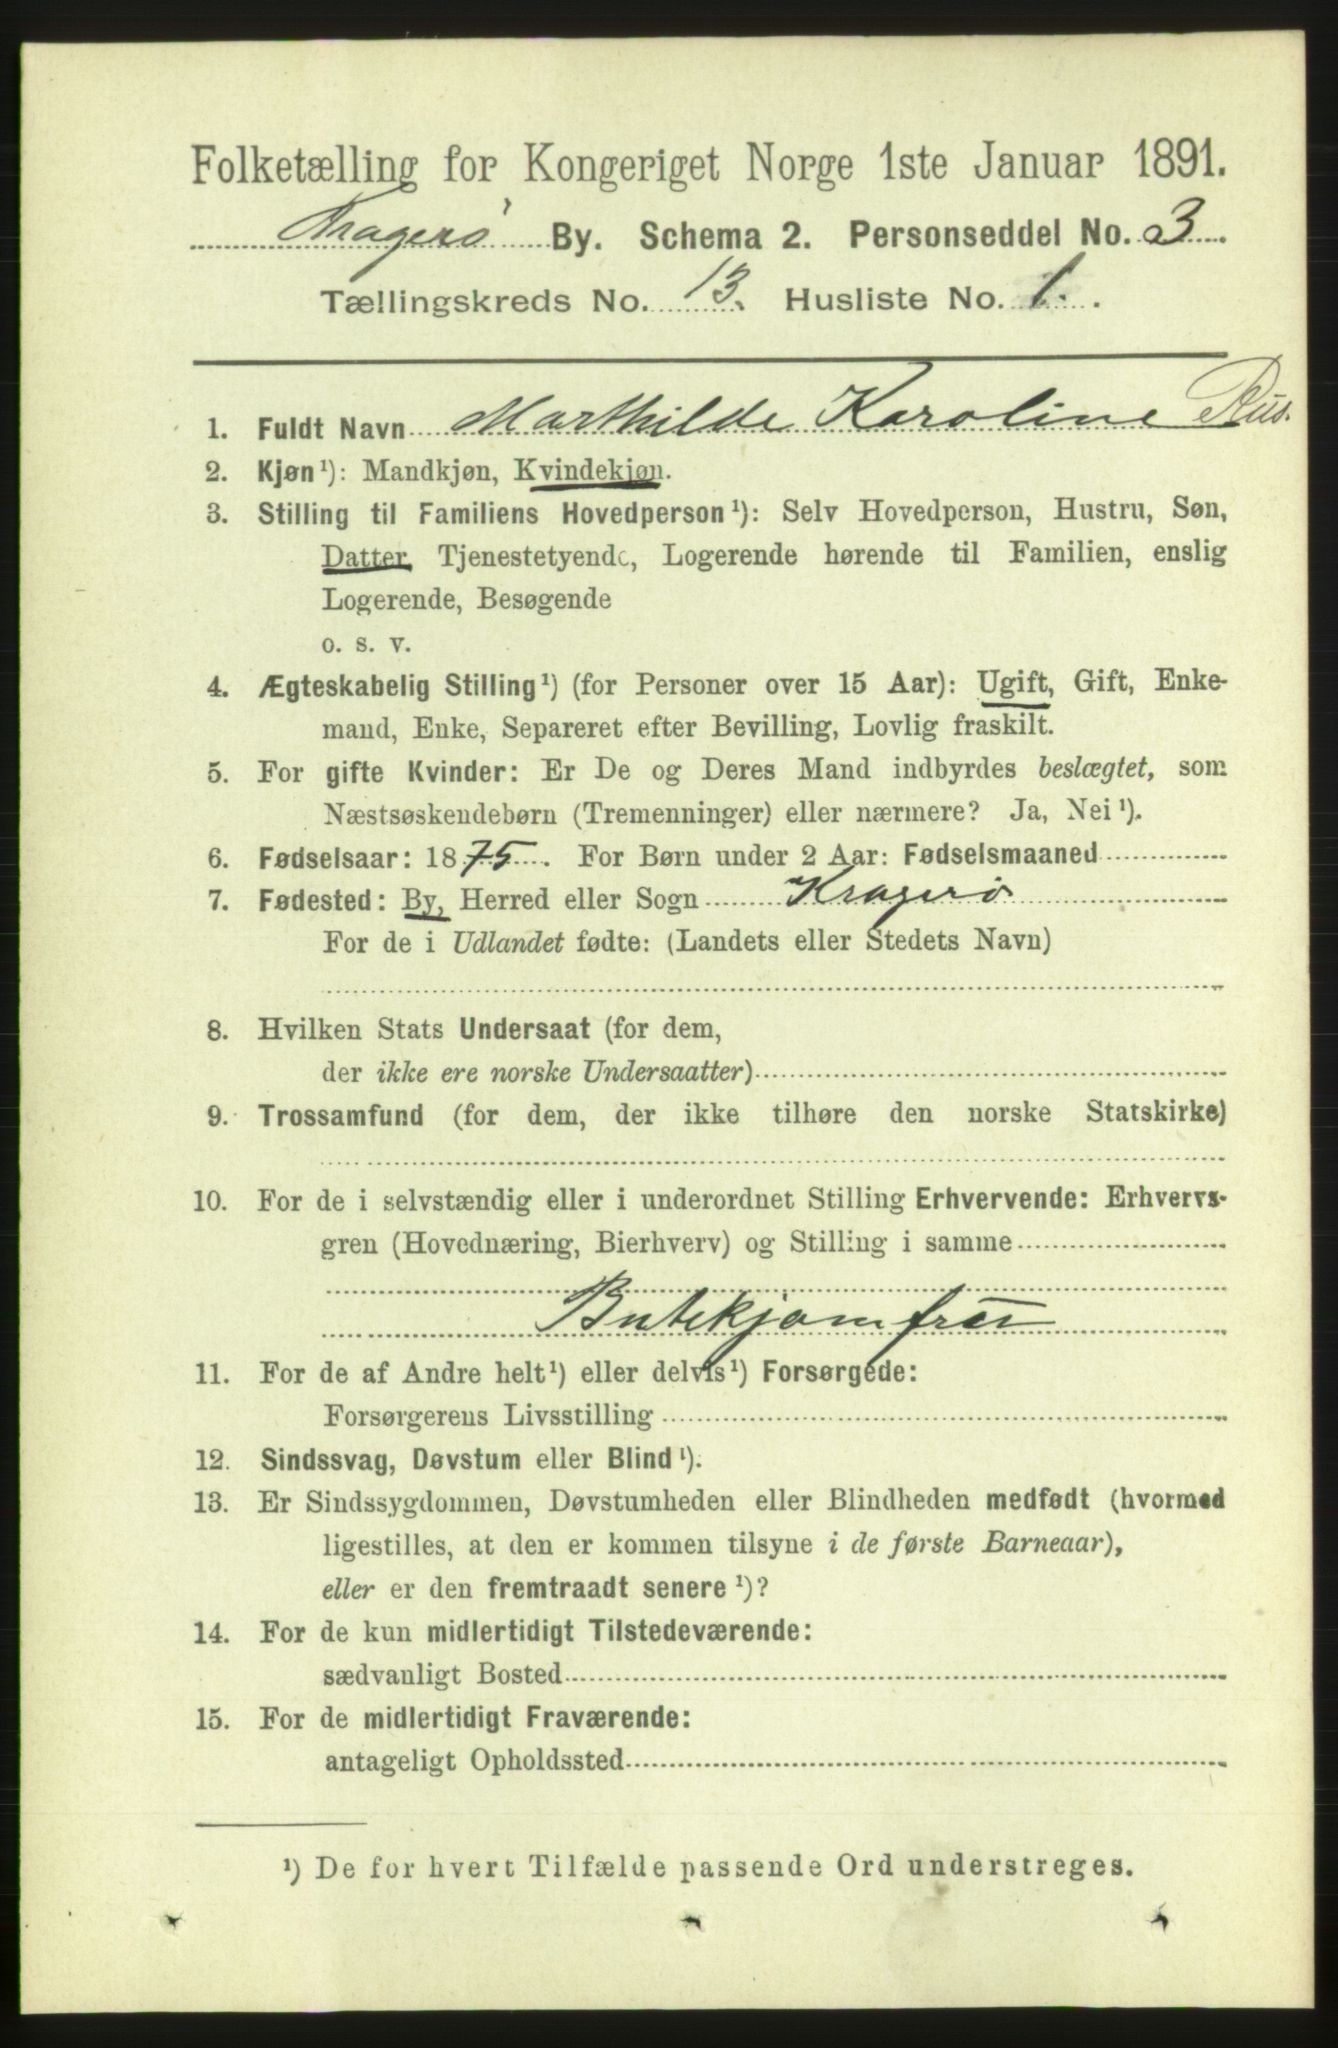 Folketælling for Kongeriget Norge 1ste Januar 1891.
Kragerø By. Schema 2. Personseddel No. 3
Tællingskreds No. 13. Husliste No. 1.
1. Fuldt Navn Marthilde Karoline Rus.
2. Kjøn¹): Mandkjøn, Kvindekjøn.
3. Stilling til Familiens Hovedperson¹): Selv Hovedperson, Hustru, Søn,
Datter, Tjenestetyende, Logerende hørende til Familien, enslig
Logerende, Besøgende
o. s. v.
4. Ægteskabelig Stilling¹) (for Personer over 15 Aar): Ugift, Gift, Enke-
mand, Enke, Separeret efter Bevilling, Lovlig fraskilt.
5. For gifte Kvinder: Er De og Deres Mand indbyrdes beslægtet, som
Næstsøskendebørn (Tremenninger) eller nærmere? Ja, Nei¹).
6. Fødselsaar: 1875. For Børn under 2 Aar: Fødselsmaaned
7. Fødested: By, Herred eller Sogn Kragerø
For de i Udlandet fødte: (Landets eller Stedets Navn)
8. Hvilken Stats Undersaat (for dem,
der ikke ere norske Undersaatter)
9. Trossamfund (for dem, der ikke tilhøre den norske Statskirke)
10. For de i selvstændig eller i underordnet Stilling Erhvervende: Erhvervs-
gren (Hovednæring, Bierhverv) og Stilling i samme
Butekjomfru
11. For de af Andre helt¹) eller delvis¹) Forsørgede:
Forsørgerens Livsstilling
12. Sindssvag, Døvstum eller Blind¹).
13. Er Sindssygdommen, Døvstumheden eller Blindheden medfødt (hvormed
ligestilles, at den er kommen tilsyne i de første Barneaar),
eller er den fremtraadt senere¹)?
14. For de kun midlertidigt Tilstedeværende:
sædvanligt Bosted
15. For de midlertidigt Fraværende:
antageligt Opholdssted
¹) De for hvert Tilfælde passende Ord understreges.